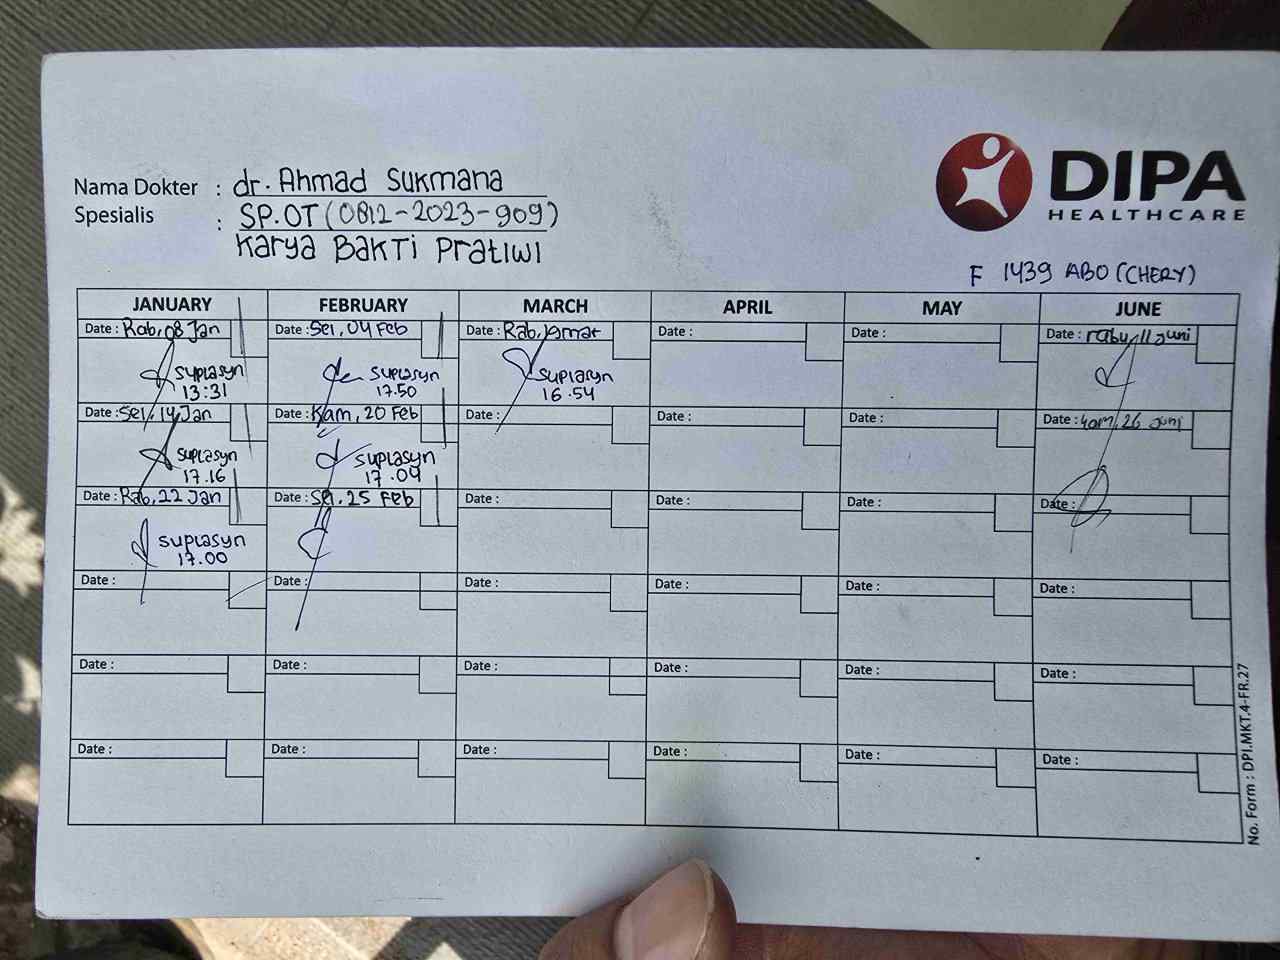 DIPA
HEALTHCARE
Nama Dokter : dr. Ahmad Sukmana
Spesialis : SP.OT (0812-2023-909)
Karya Bakti Pratiwi
F 1439 ABO (CHERY)
JANUARY FEBRUARY MARCH APRIL MAY JUNE
Date : Rab, 08 Jan Date : Sel, 04 Feb Date : Rab, 19 mar Date : Date : Date : rabu, 11 Juni
suplasyn suplasyn suplasyn
13:31 17.50 16.54
Date : Sel, 14 Jan Date : Kam, 20 Feb Date : Date : Date : Date : kam, 26 Juni
suplasyn suplasyn
17.16 17.09
Date : Rab, 22 Jan Date : Sel, 25 Feb Date : Date : Date : Date :
suplasyn
17.00
Date : Date : Date : Date : Date : Date :
Date : Date : Date : Date : Date : Date :
Date : Date : Date : Date : Date : Date :
No. Form : DPI.MKT.4-FR.27